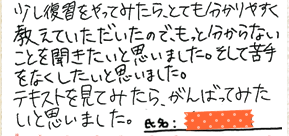 少し復習をやってみたら、とても分かりやすく
教えていただいたので、もっと分からない
ことを聞きたいと思いました。そして苦手
をなくしたいと思いました。
テキストを見てみたら、がんばってみた
いと思いました。 氏名: